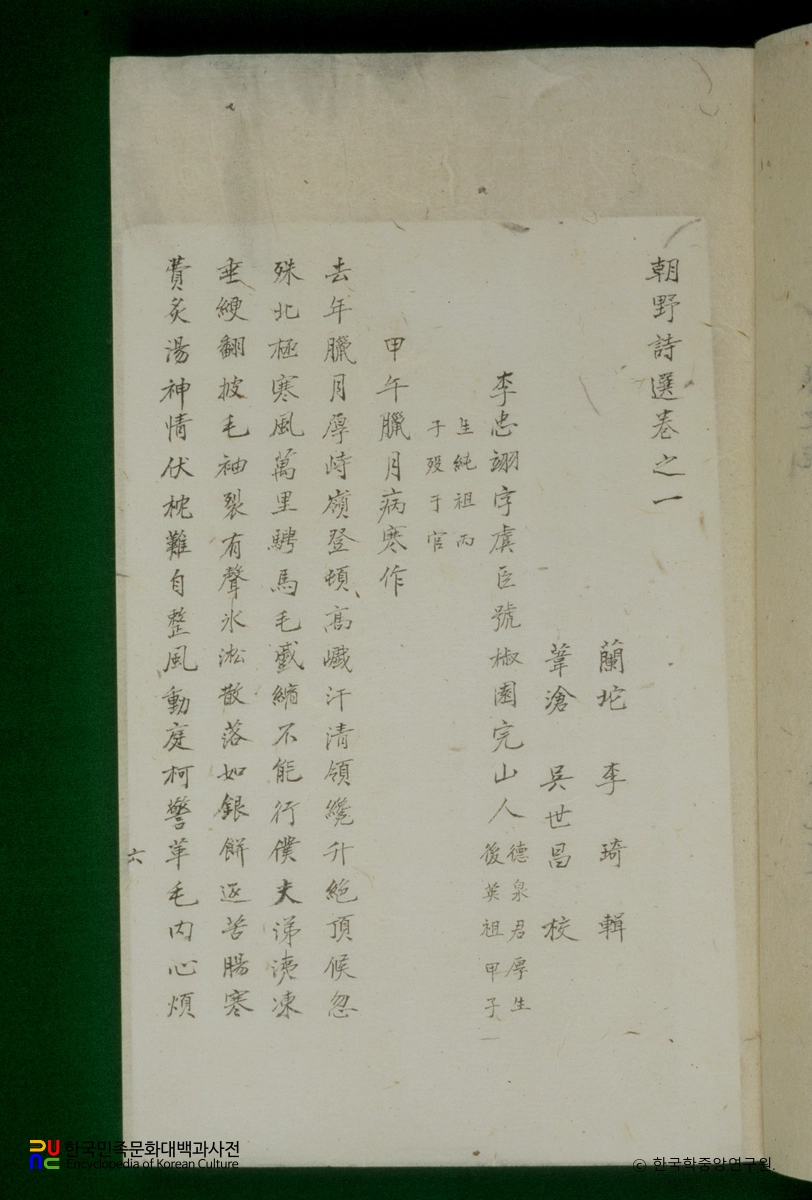 朝野詩選卷之一
蘭坨 李琦 輯
葦滄 吳世昌 校
李忠翊字虞臣號椒園完山人德泉君厚生
後英祖甲子
生純祖丙
子歿于官
甲午臘月病寒作
去年臘月厚峙嶺登頓高巘汗淸領纔升絶頂候忽
殊北極寒風萬里騁馬毛蝟縮不能行僕夫涕洟凍
垂綆翻披毛袖裂有聲氷淞散落如銀餠返苦腸寒
費炙湯神情伏枕難自整風動庭柯警革毛內心煩
六
한국민족문화대백과사전
Encyclopedia of Korean Culture
© 한국학중앙연구원.